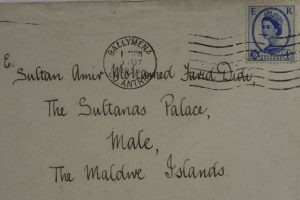 BALLYMENA
CO. ANTRIM
E R
E.
Sultan Amir Mohamed Farid Didi,
The Sultanas Palace,
Male,
The Maldive Islands.